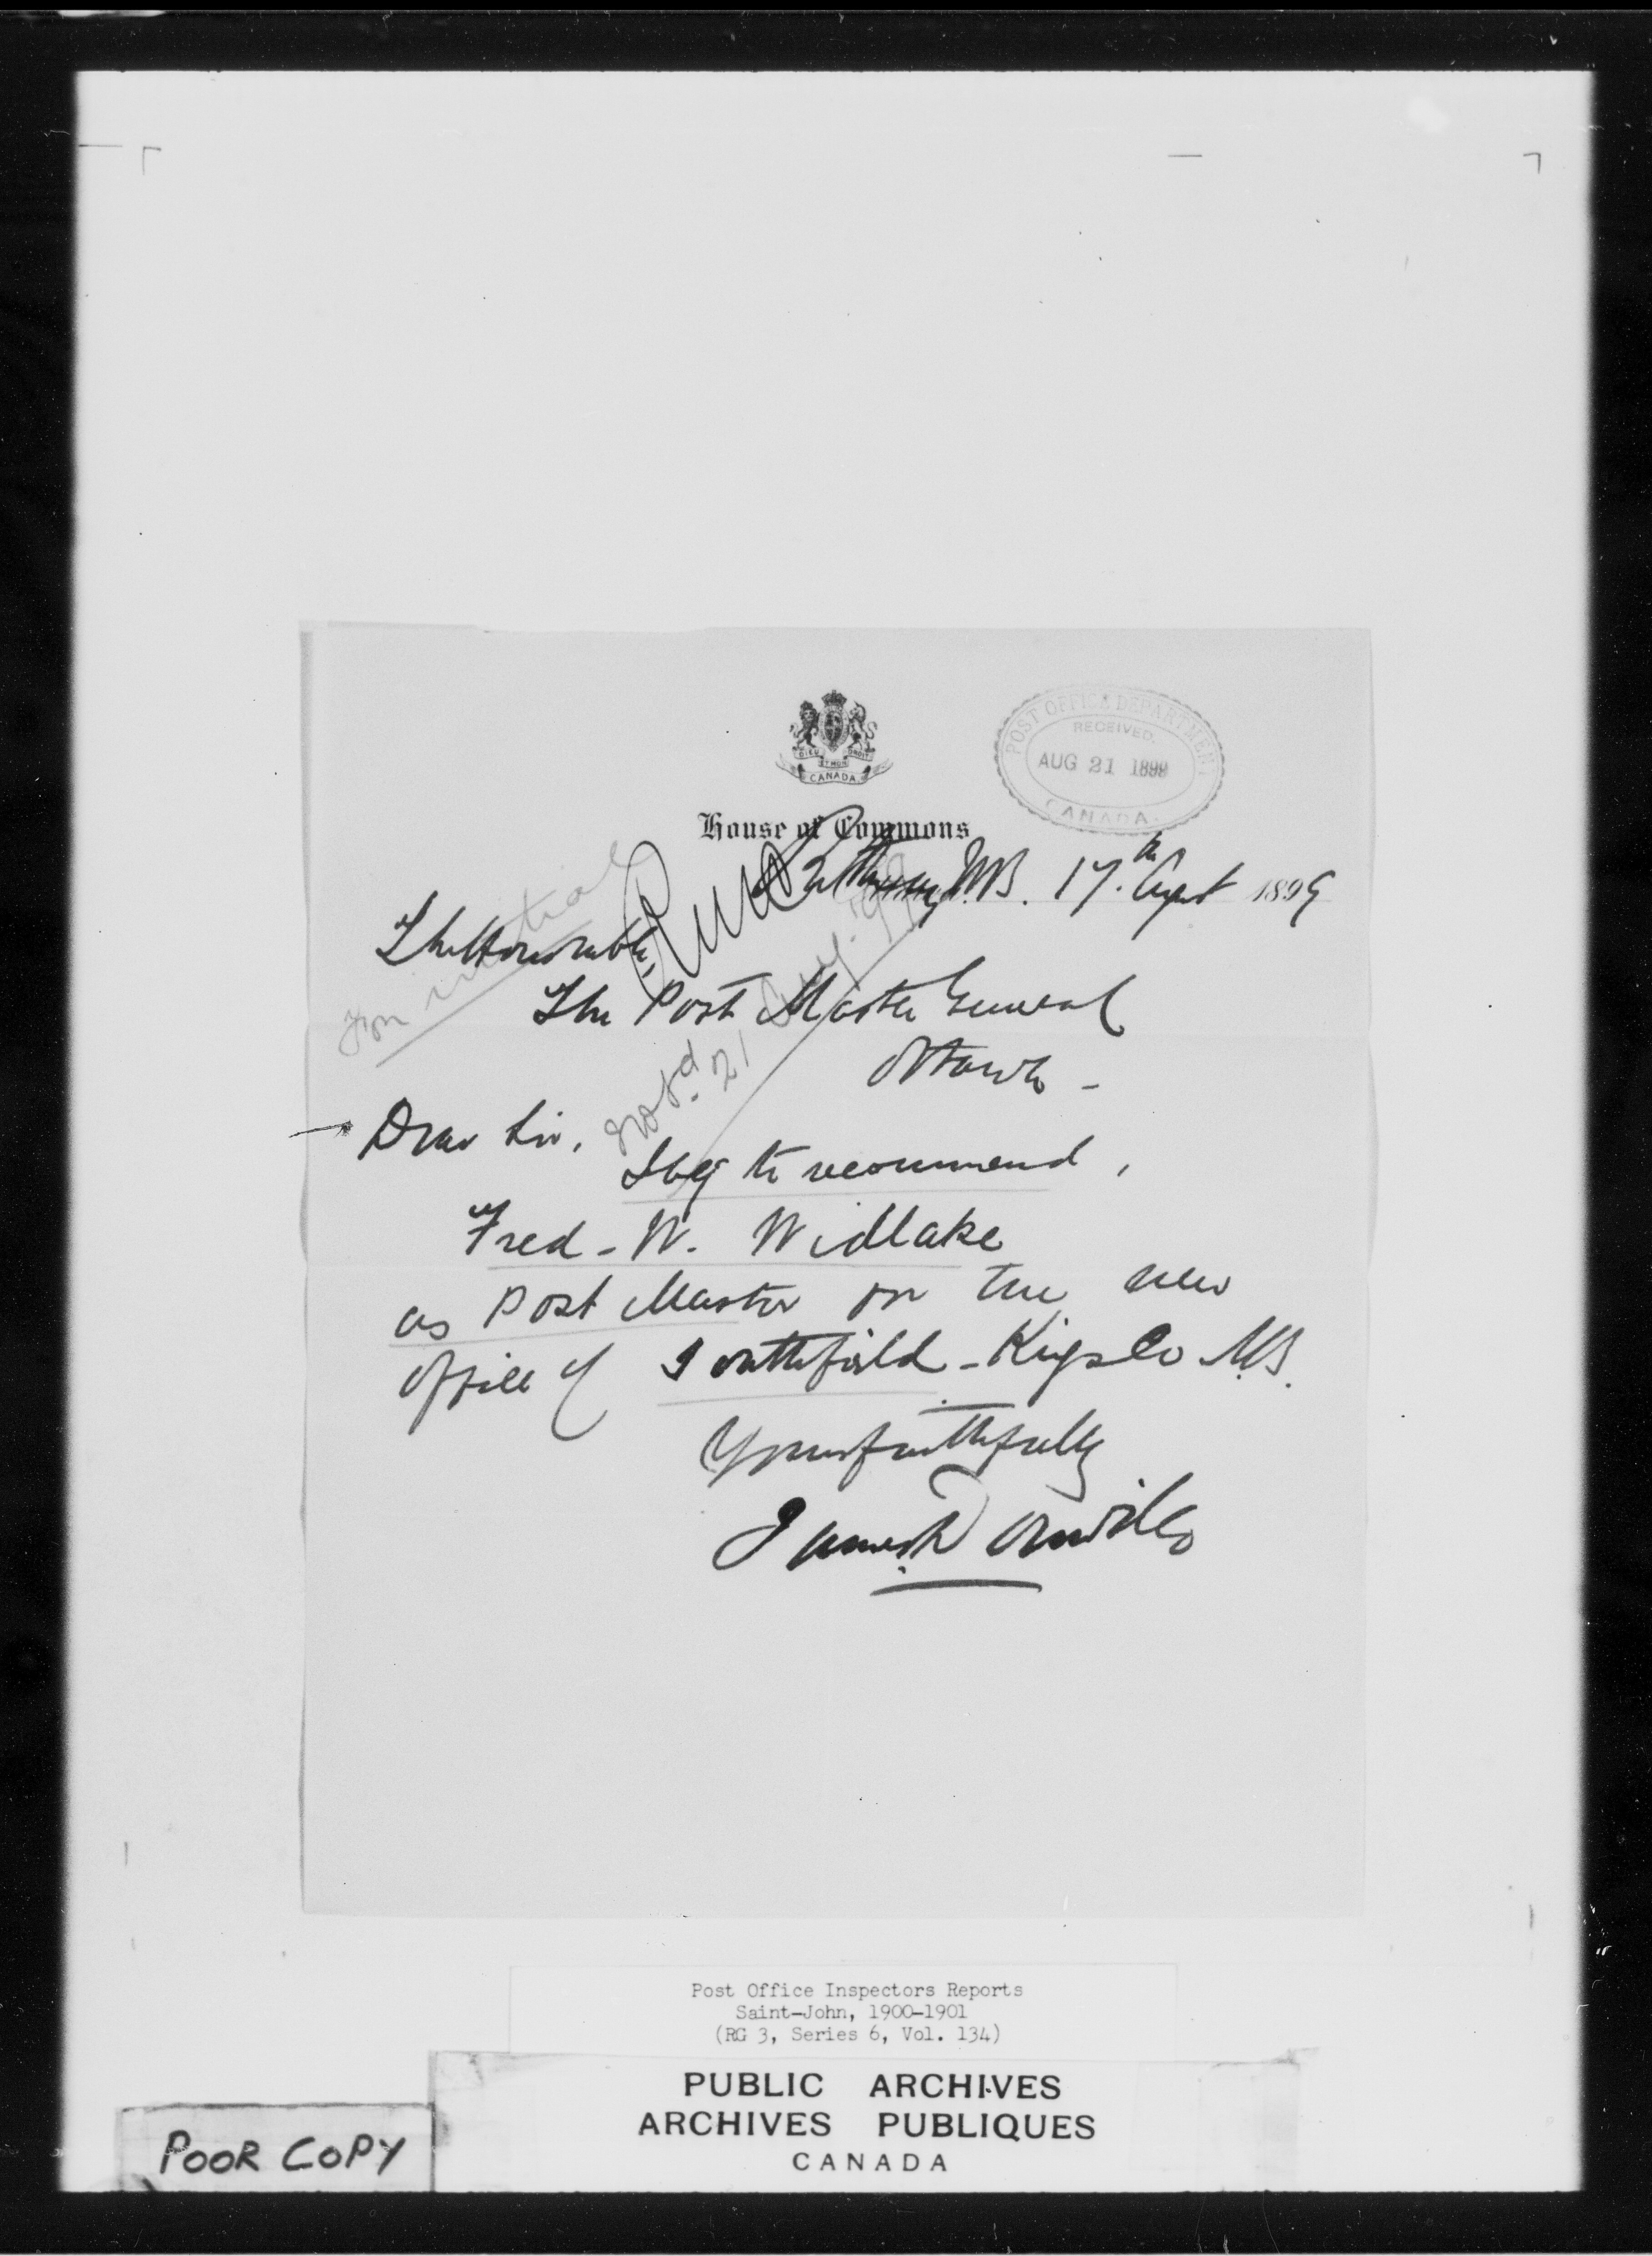 DIEU ET MON DROIT
CANADA
POST OFFICE DEPARTMENT
RECEIVED.
AUG 21 1899
CANADA.
House of Commons
N.B. 17th August 1899
The Honorable,
The Post Master General
Ottawa -
For initial
Notd. 21 Aug. 99
Dear Sir,
I beg to recommend,
Fred - W. Widlake
as Post Master for the new
office of Southfield - Kings Co N.B.
Yours faithfully
James Domville
Post Office Inspectors Reports
Saint-John, 1900-1901
(RG 3, Series 6, Vol. 134)
PUBLIC ARCHIVES
ARCHIVES PUBLIQUES
CANADA
POOR COPY